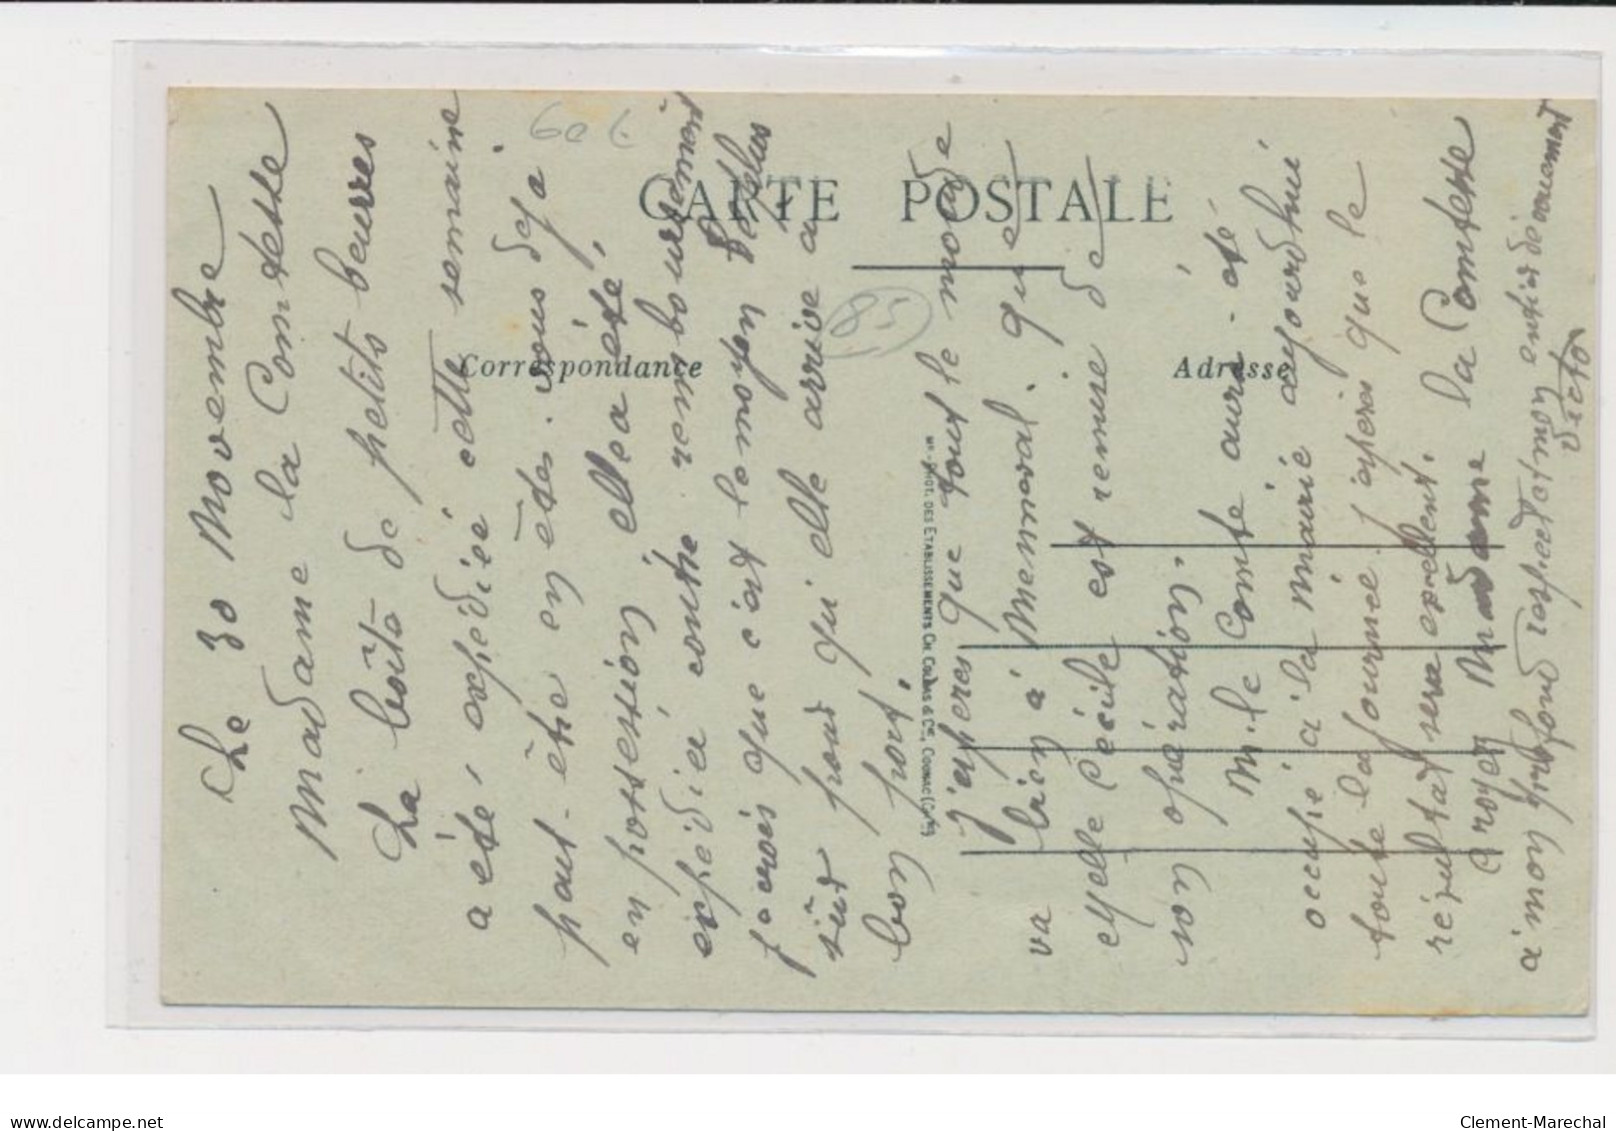 CARTE POSTALE
Correspondance
Adresse
Mon. PHOT. DES ETABLISSEMENTS CH. COLLAS & Cie, COGNAC
60 c
85
Le 30 Novembre
Madame la Comtesse
La boîte de petits beurres
a été expédiée cette semaine
peut-être en êtes-vous déjà
en possession, elle a été
expédiée contre remboursement
je crois que c'est le moyen le plus
sûr pour qu'elle arrive à
bon port.
J'espères que tout le monde
va bien à Memmoral. que
elle Cécile est remise de
son opération.
M. le Comte aura-été
occupé à la mairie aujourdhui
toute la journée. j'espères que le
résultat sera excellent.
Croyez Madame la Comtesse
à mon profond respect et mon entier dévouement
delhampe.net
Clement-Marechal